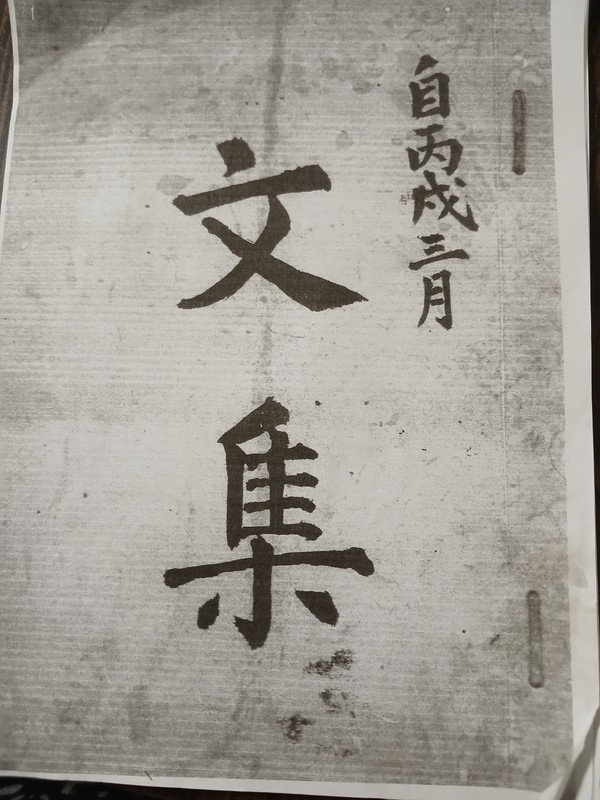 自丙戌三月
文集